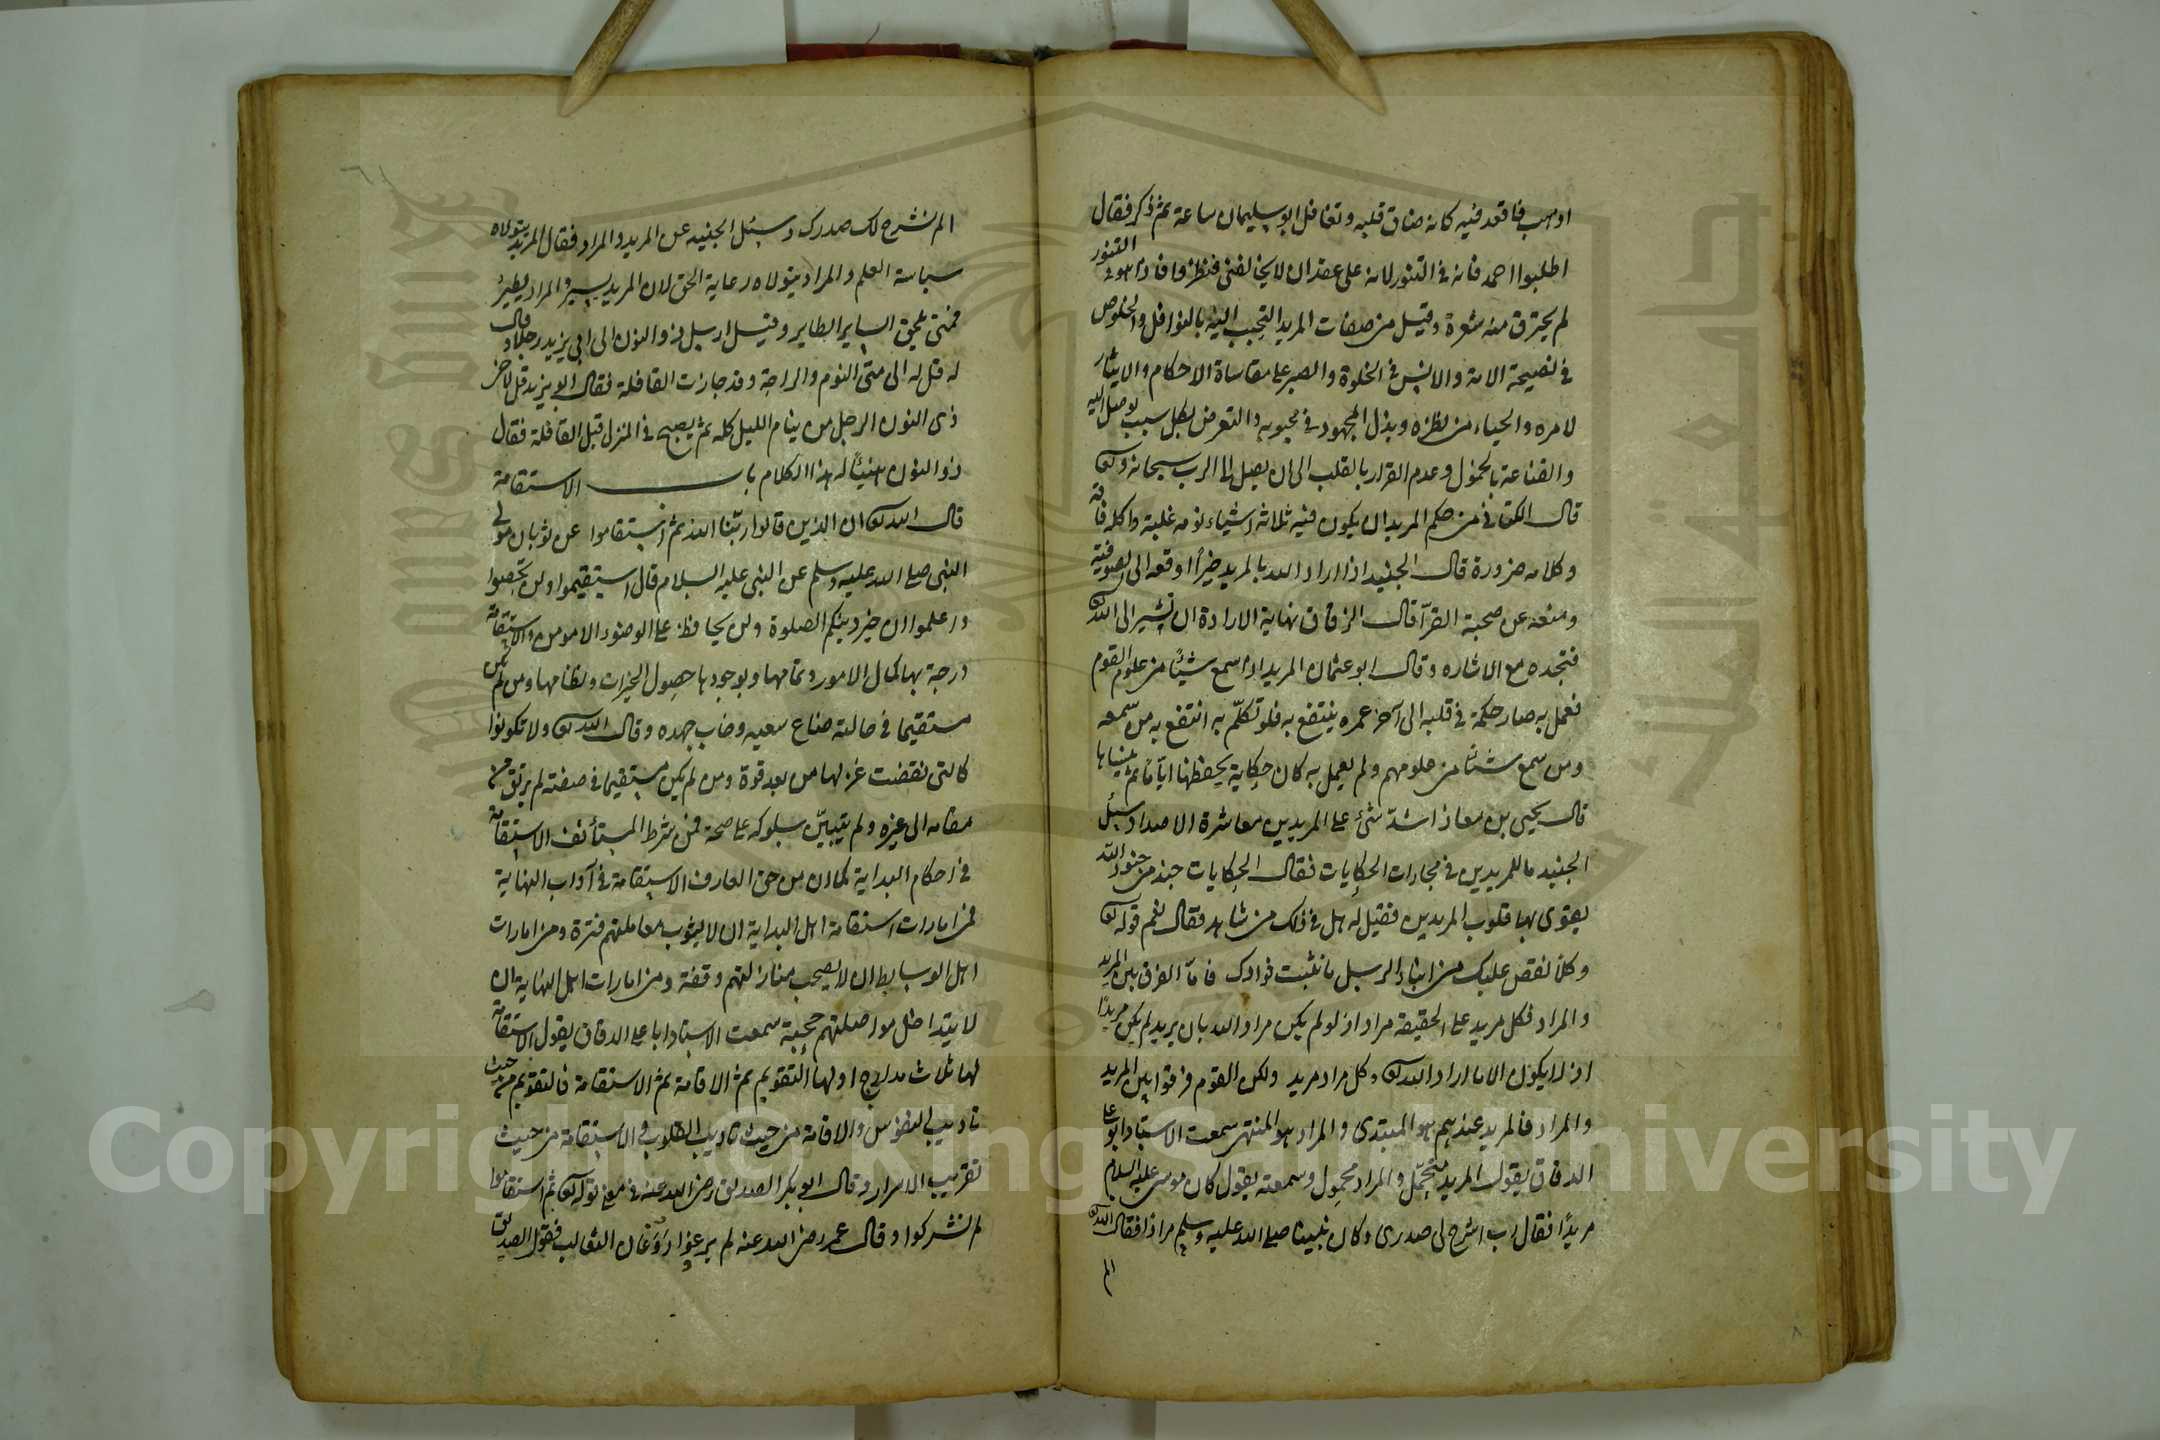 اذهب فاقعد فيه كانه ضاق قلبه وتغافل ابو سليمان ساعة ثم ذكر فقال
اطلبوا احمد فانه في التنور لانه على عقد ان لا يخالفني فنظروا فاذا هو في التنور
لم يحترق منه شعرة وقيل من صفات المريد التحبب اليه بالنوافل والخلوص
في نصيحة الامة والانس في الخلوة والصبر على مقاساة الاحكام والايثار
لامره والحياء من نظره وبذل المجهود في محبوبه والتعرض بكل سبب يوصل اليه
والقناعة بالخمول وعدم القرار بالقلب الى ان يصل الى الرب سبحانه وتعالى
قال الكتاني من حكم المريد ان يكون فيه ثلاثة اشياء نومه غلبة واكله فاقة
وكلامه ضرورة قال الجنيد اذا اراد الله بالمريد خيرًا اوقعه الى الصوفية
ومنعه عن صحبة القرآ قال الزقاق نهاية الارادة ان تشير الى الله تعالى
فتجده مع الاشاره وقال ابو عثمان المريد اذا سمع شيئًا من علوم القوم
فعمل به صار حكمة في قلبه الى آخر عمره ينتفع به فلو تكلّم به انتفع به من سمعه
ومن سمع شيئًا من علومهم ولم يعمل به كان حكاية يحفظها ايّامًا ثم ينساها
قال يحيى بن معاذ اشدّ شئ على المريدين معاشرة الاضداد وسئل
الجنيد ما للمريدين في مجارات الحكايات فقال الحكايات جند من جنود الله
يقوى بها قلوب المريدين فقيل له هل في ذلك من شاهد فقال نعم قوله تعالى
وكلا نقص عليك من انباء الرسل ما نثبت به فؤادك فامّا الفرق بين المريد
والمراد فكل مريد على الحقيقة مراد اذ لو لم يكن مراد الله بان يريد لم يكن مريدًا
اذ لا يكون الا ما اراد الله تعالى وكل مراد مريد ولكن القوم فرقوا بين المريد
والمراد فالمريد عندهم هو المبتدى والمراد هو المنتهى سمعت الاستاد ابو على
الدقاق يقول المريد متحمّل والمراد محمول وسمعته يقول كان موسى عليه السلام
مريدًا فقال رب اشرح لى صدرى وكان نبينا صلى الله عليه وسلم مرادا فقال الله تعالى
الم
الم نشرح لك صدرك وسئل الجنيد عن المريد والمراد فقال المريد يتولاه
سياسة العلم والمراد يتولاه رعاية الحق لان المريد يسير والمراد يطير
فمتى يلحق الساير الطاير وقيل ارسل ذو النون الى ابى يزيد رجلا وقال
له قل له الى متى النوم والراحة وقد جازت القافلة فقال ابو يزيد قل لاخى
ذى النون الرجل من ينام الليل كله ثم يصبح في المنزل قبل القافلة فقال
ذو النون هنيئًا له هذا الكلام باب الاستقامة
قال الله تعالى ان الذين قالوا ربّنا الله ثم استقاموا عن ثوبان مولى
النبى صلى الله عليه وسلم عن النبى عليه السلام قال استقيموا ولن تحصوا
واعلموا ان خير دينكم الصلوة ولن يحافظ على الوضوء الا مومن والاستقامة
درجة بها كمال الامور وتمامها وبوجودها حصول الخيرات ونظامها ومن لم يكن
مستقيما في حالته ضاع سعيه وخاب جهده وقال الله تعالى ولا تكونوا
كالتى نقضت غزلها من بعد قوة ومن لم يكن مستقيما في صفته لم يرتق من
مقامه الى غيره ولم يتبيّن سلوكه على صحة فمن شرط المستأنف الاستقامة
في احكام البداية كما ان من حق العارف الاستقامة في آداب النهاية
فمن امارات استقامة اهل البداية ان لا يشوب معاملتهم فترة ومن امارات
اهل الوسايط ان لا يصحب منازلتهم وقفة ومن امارات اهل النهاية ان
لا يتداخل مواصلتهم حجبة سمعت الاستاد ابا على الدقاق يقول الاستقامة
لها ثلاث مدارج اولها التقويم ثم الاقامة ثم الاستقامة فالتقويم من حيث
تاديب النفوس والاقامة من حيث تاديب القلوب والاستقامة من حيث
تقريب الاسرار وقال ابو بكر الصديق رضى الله عنه في معنى قوله تعالى ثم استقاموا
لم يشركوا وقال عمر رضى الله عنه لم يرعوا روغان الثعالب فقول الصديق
Copyright © King Saud University